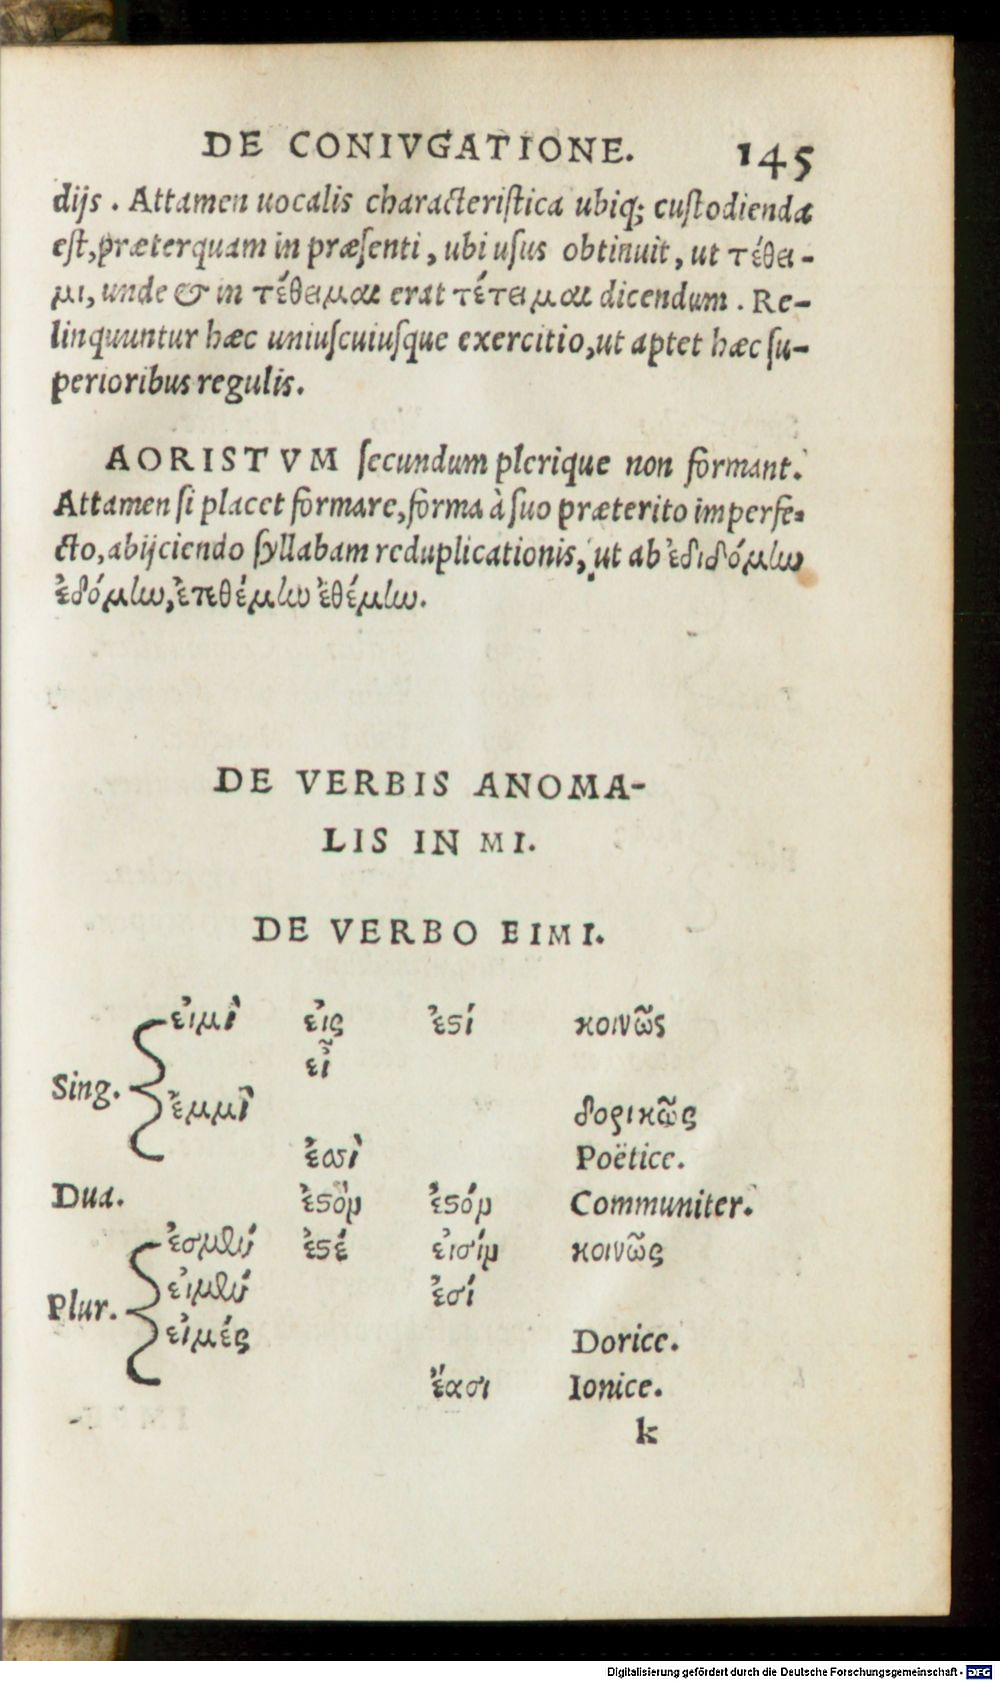 DE CONIVGATIONE. 145
dijs. Attamen uocalis characteriſtica ubiq; cuſtodienda
eſt, præterquam in præſenti, ubi uſus obtinuit, ut τέθει-
μι, unde & in τέθειμαι erat τέτειμαι dicendum. Re-
linquuntur hæc uniuſcuiuſque exercitio, ut aptet hæc ſu-
perioribus regulis.
AORISTVM ſecundum plerique non formant.
Attamen ſi placet formare, forma à ſuo præterito imperfe-
cto, abijciendo ſyllabam reduplicationis, ut ab ἐδιδόμην
ἐδόμην, ἐτιθέμην ἐθέμην.
DE VERBIS ANOMA-
LIS IN MI.
DE VERBO EIMI.
εἰμὶ εἰς ἐϛί κοινῶς
εἶ
Sing.
ἐμμὶ δορικῶς
ἐσσὶ Poëtice.
Dua. ἐϛὸν ἐϛόν Communiter.
ἐσμέν ἐϛέ εἰσίν κοινῶς
εἰμέν ἐσί
Plur.
εἰμές Dorice.
ἔασι Ionice.
k
Digitalisierung gefördert durch die Deutsche Forschungsgemeinschaft - DFG